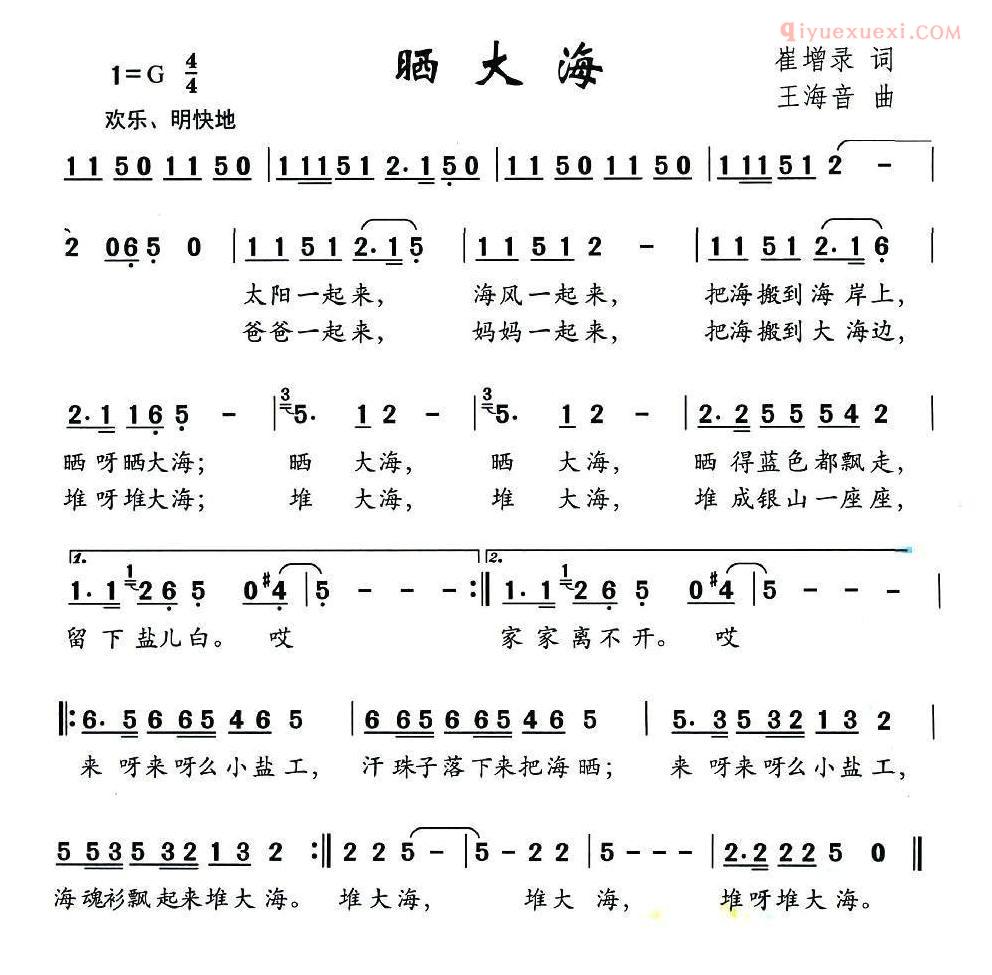 qiyuexuexi.COM
1=G 4/4
晒大海
崔增录 词
王海音 曲
欢乐、明快地
1 1 5 0 1 1 5 0 | 1 1 1 5 1 2. 1 5 0 | 1 1 5 0 1 1 5 0 | 1 1 1 5 1 2 - |
2 0 6 5 0 | 1 1 5 1 2. 1 5 | 1 1 5 1 2 - | 1 1 5 1 2. 1 6 |
太阳一起来， 海风一起来， 把海搬到海岸上，
爸爸一起来， 妈妈一起来， 把海搬到大海边，
2. 1 1 6 5 - | 3 5. 1 2 - | 3 5. 1 2 - | 2. 2 5 5 5 4 2 |
晒呀晒大海； 晒 大海， 晒 大海， 晒得蓝色都飘走，
堆呀堆大海； 堆 大海， 堆 大海， 堆成银山一座座，
1. 2.
1. 1 1 2 6 5 0 #4 | 5 - - - :‖ 1. 1 1 2 6 5 0 #4 | 5 - - - |
留下盐儿白。 哎 家家离不开。 哎
‖: 6. 5 6 6 5 4 6 5 | 6 6 5 6 6 5 4 6 5 | 5. 3 5 3 2 1 3 2 |
来呀来呀么小盐工， 汗珠子落下来把海晒； 来呀来呀么小盐工，
5 5 3 5 3 2 1 3 2 :‖ 2 2 5 - | 5 - 2 2 | 5 - - - | 2. 2 2 2 2 5 0 ‖
海魂衫飘起来堆大海。 堆大海， 堆大海， 堆呀堆大海。